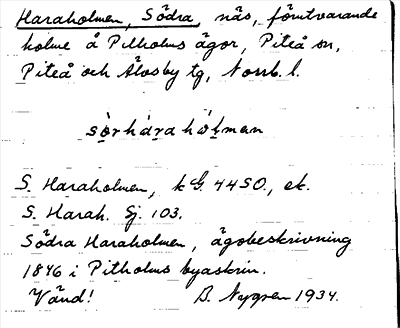 Haraholmen, Södra, näs, förutvarande
holme å Pitholms ägor, Piteå sn,
Piteå och Älvsby tg, Norrb. l.
sörhárahòlmen
S. Haraholmen, 44SO., ek.
S. Harah. Sj. 103.
Södra Haraholmen, ägobeskrivning
1846 i Pitholms byaskrin.
Vänd! B. Nygren 1934.